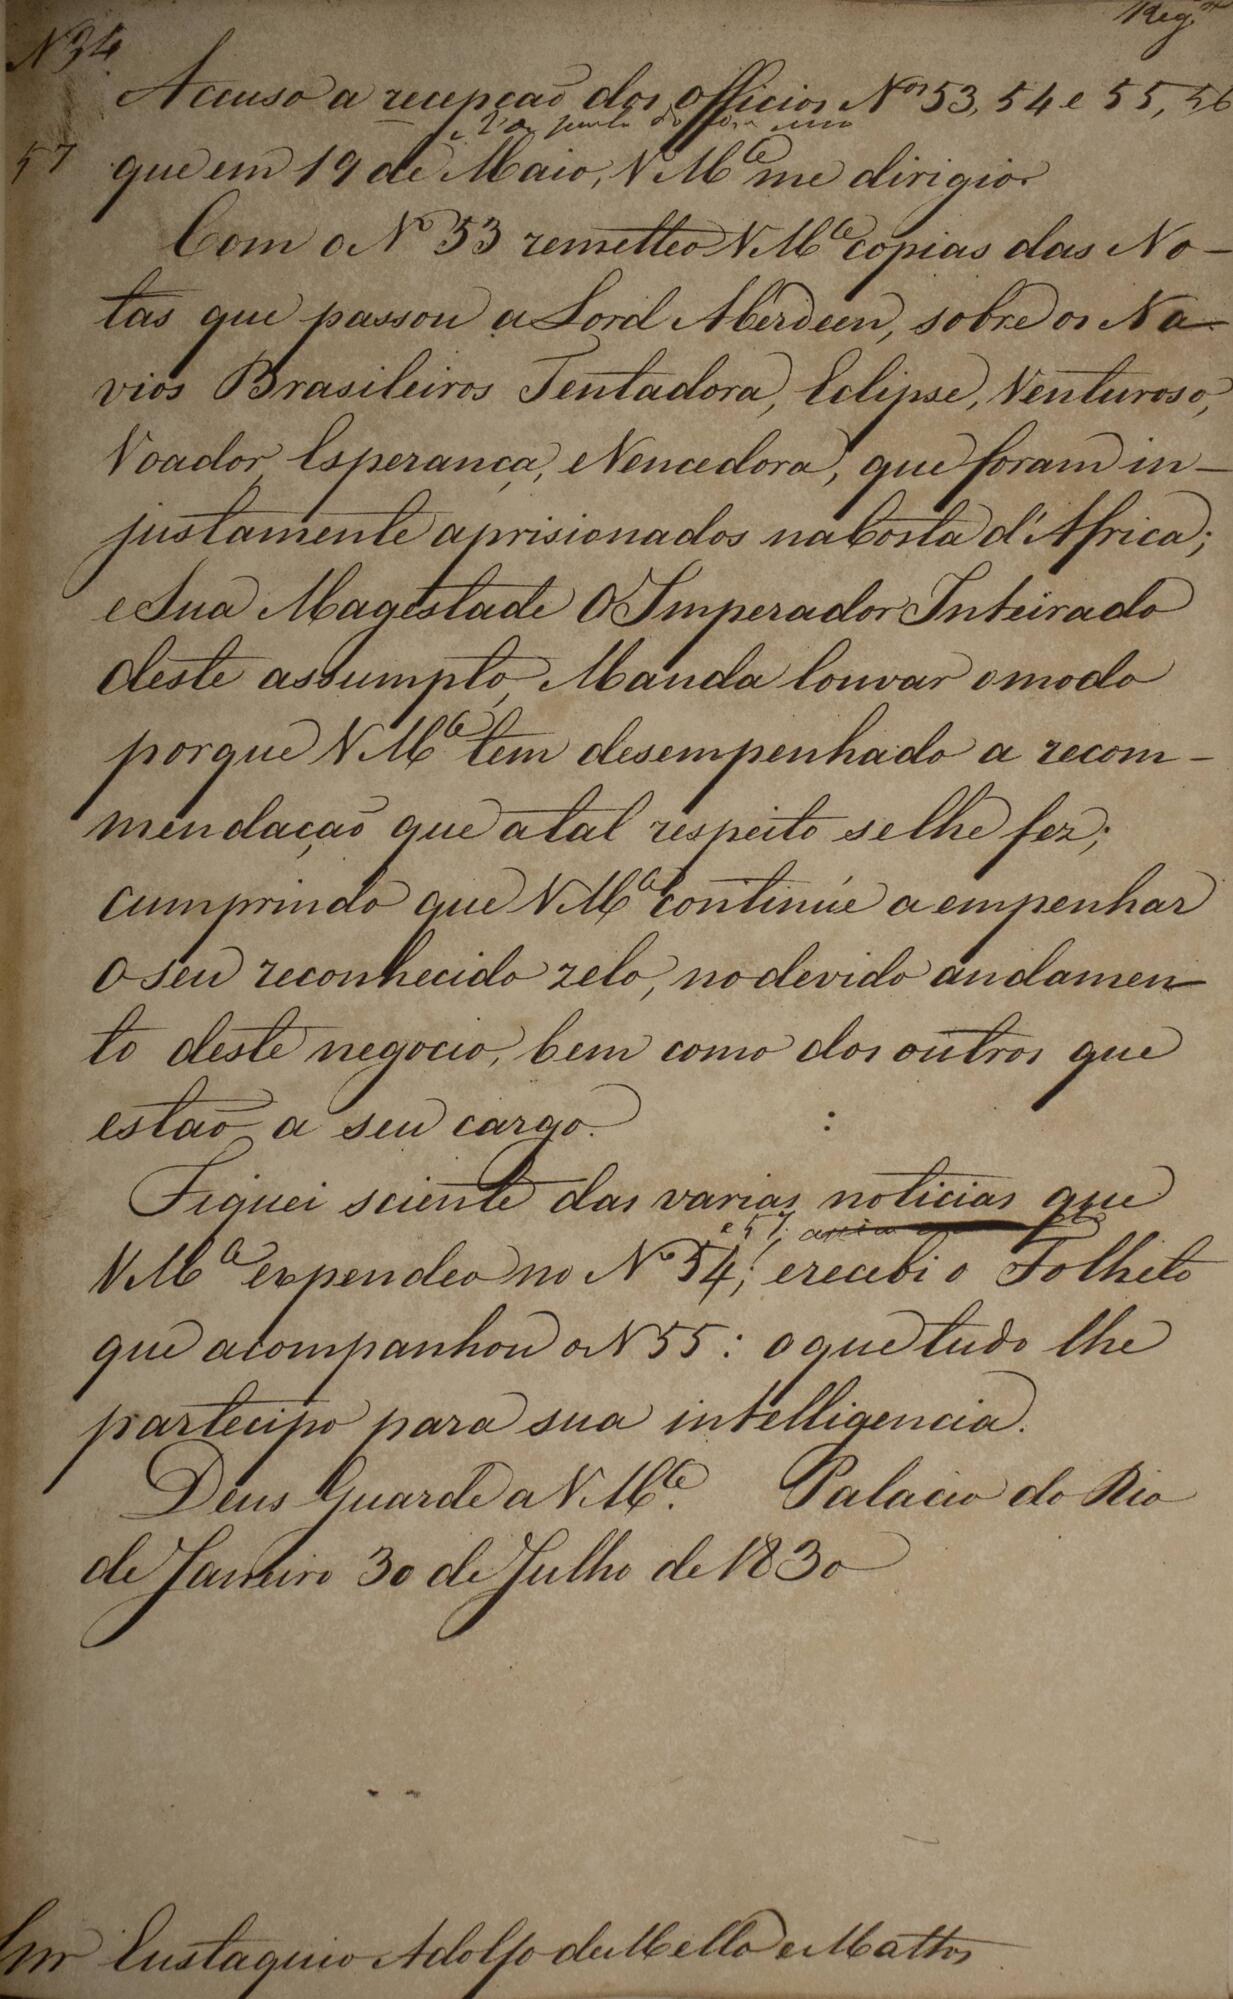 Reg.
N 34.
Accuso a recepção dos officios Nos 53, 54 e 55, 56
57 que em 19 de Maio, V Mce me dirigio.
Com o No 53 remetteo V Mce copias das No-
tas que passou a Lord Aberdeen, sobre os Na-
vios Brasileiros Tentadora, Eclipse, Venturoso,
Voador, Esperança, e Vencedora, que foram in-
justamente aprisionados na Costa d'Africa;
e Sua Magestade O Imperador Inteirado
deste assumpto, Manda louvar o modo
porque V Mce tem desempenhado a recom-
mendação que a tal respeito se lhe fez;
cumprindo que V Mce continúe a empenhar
o seu reconhecido zelo, no devido andamen-
to deste negocio, bem como dos outros que
estão a seu cargo. :
Fiquei sciente das varias noticias que
e 57,
V Mce expendeo no No 54; e recebi o Folheto
que acompanhou o N 55: o que tudo lhe
partecipo para sua intelligencia.
Deus Guarde a V Mce. Palacio do Rio
de Janeiro 30 de Julho de 1830
Snr Eustaquio Adolfo de Mello e Mattos